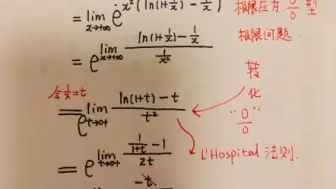 = lim_{x→+∞} e^{x²(ln(1+1/x) - 1/x)} 极限应为 0/0 型
= e^{lim_{x→+∞} (ln(1+1/x) - 1/x)/(1/x²)} 极限问题
令1/x=t 转
= e^{lim_{t→0+} (ln(1+t) - t)/t²} 化
"0/0"
= e^{lim_{t→0+} (1/(1+t) - 1)/2t} L'Hospital 法则.
lim -t